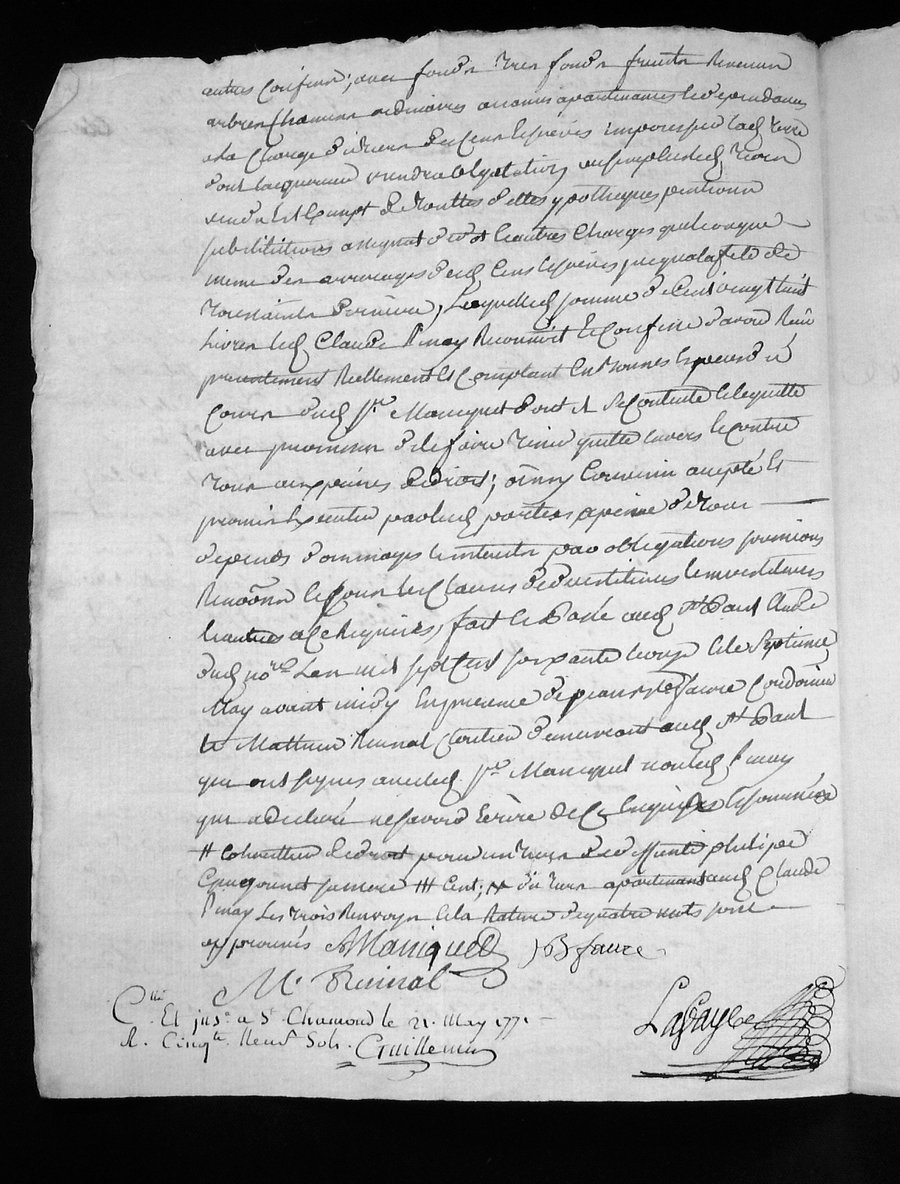 autres Confins, avec fonds tres fonds fruits Revenus
arbres Chemins ordinaires aisances apartenances et dependances
a la Charge des Cens et servis imposés sur lad. terre
dont lacquereur rendra obligation, au surplus led. terrein
vendu est Exempt de toutes dettes ypotheques pentions
substitutions assignat de dot et autres Charges quelconque
meme des arrerages desd. Cens et servis jusqua la fete de
toussaints derniere, Laquelle somme de Cent vingt huit
Livres led. Claude Pinay Reconnoit et Confesse d'avoir Reçu
presentement Réellement et Comptant En bonnes Especes de
Cours dud. Sr. Maniquet dont il se Contente et le quitte
avec promesse de le faire tenir quitte envers et Contre
tous aux peines de droit; ainsy Convenu accepté et
promis Executer par lesd. parties a peine de tous
depends dommages et interets par obligations soumissions
Renonciations et sous les Clauses de devestitures et investitures
et autres a ce Requises, fait et Passé aud. St. Paul Etude
dud. nore. L'an mil sept Cent soixante et onze et le septieme
May avant midy En presence de Jean Bte. faure Cordonier
et Mathieu Reinal Cloutier demeurant aud. St. Paul
qui ont signes avec led. Sr. Maniquet non led. Pinay
qui a declaré ne savoir Ecrire de Ce Enquis et sommé
# Cohéritier de droit pour un tiers de deffunte philipe
sa mere ### Cent; ## du tiers apartenant aud. Claude
Pinay Les trois Renvoys et la Rature de quatre mots sont
approuvés AManiquet JB faure
M. Reinal
Cllé. Et insé. a St. Chamond le 21. May 1771
R. Cinqte. neuf Sols. Guillemin
Lafayolle